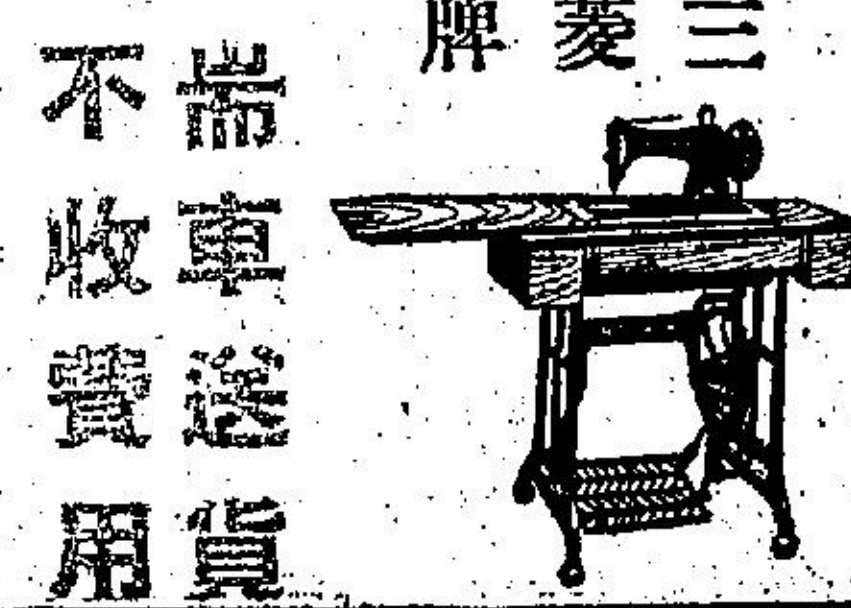 三菱牌
耑車送貨
不收費用